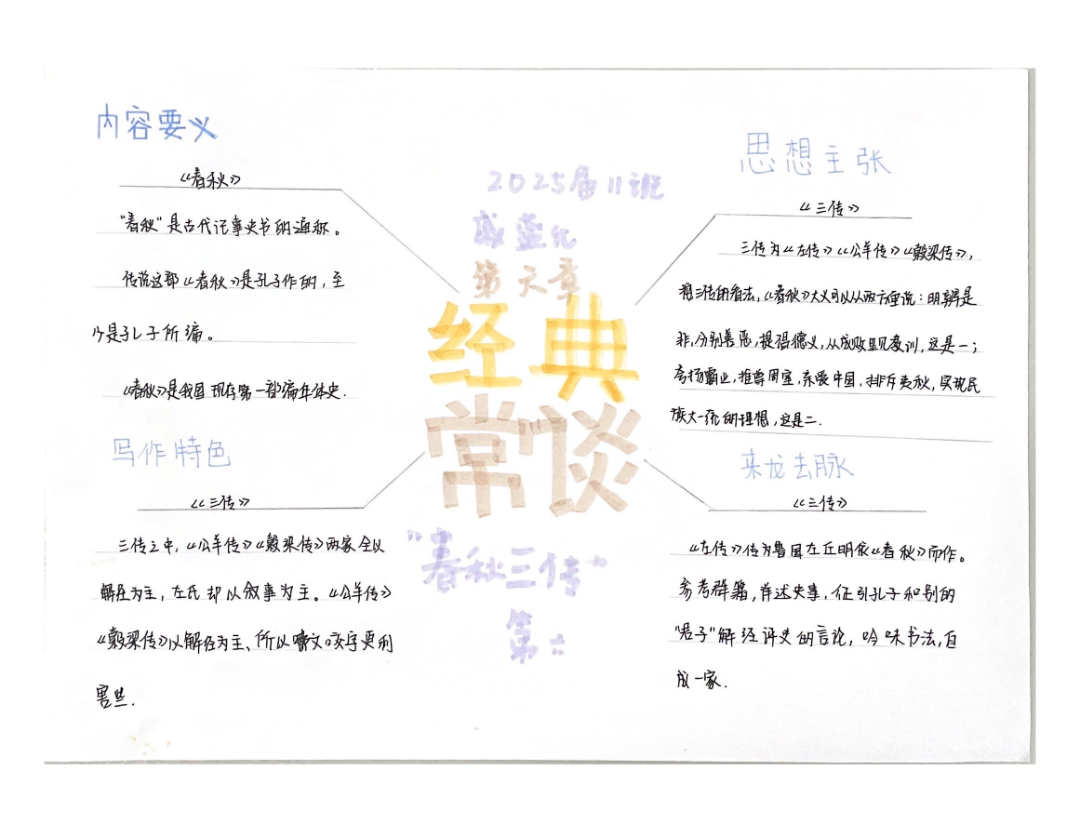 内容要义
《春秋》
"春秋"是古代记事史书的通称。
传说这部《春秋》是孔子作的，至
少是孔子所编。
《春秋》是我国现存第一部编年体史.
写作特色
《三传》
三传之中，《公羊传》《穀梁传》两家全以
解经为主，左氏却以叙事为主。《公羊传》
《穀梁传》以解经为主、所以嚼文咬字更利
害些.
2025届11班
第六章
经典
常谈
"春秋三传"
第六
思想主张
《三传》
三传为《左传》《公羊传》《穀梁传》，
想三传的看法，《春秋》大义可以从两方面说：明辨是
非，分别善恶，提倡德义，从成败里见教训，这是一；
夸扬霸业，推尊周室，亲爱中国，排斥夷狄，实现民
族大一统的理想，这是二.
来龙去脉
《三传》
《左传》传为鲁国左丘明依《春秋》而作。
参考群籍，详述史事，征引孔子和别的
"君子"解经评史的言论，吟味书法，自
成一家.